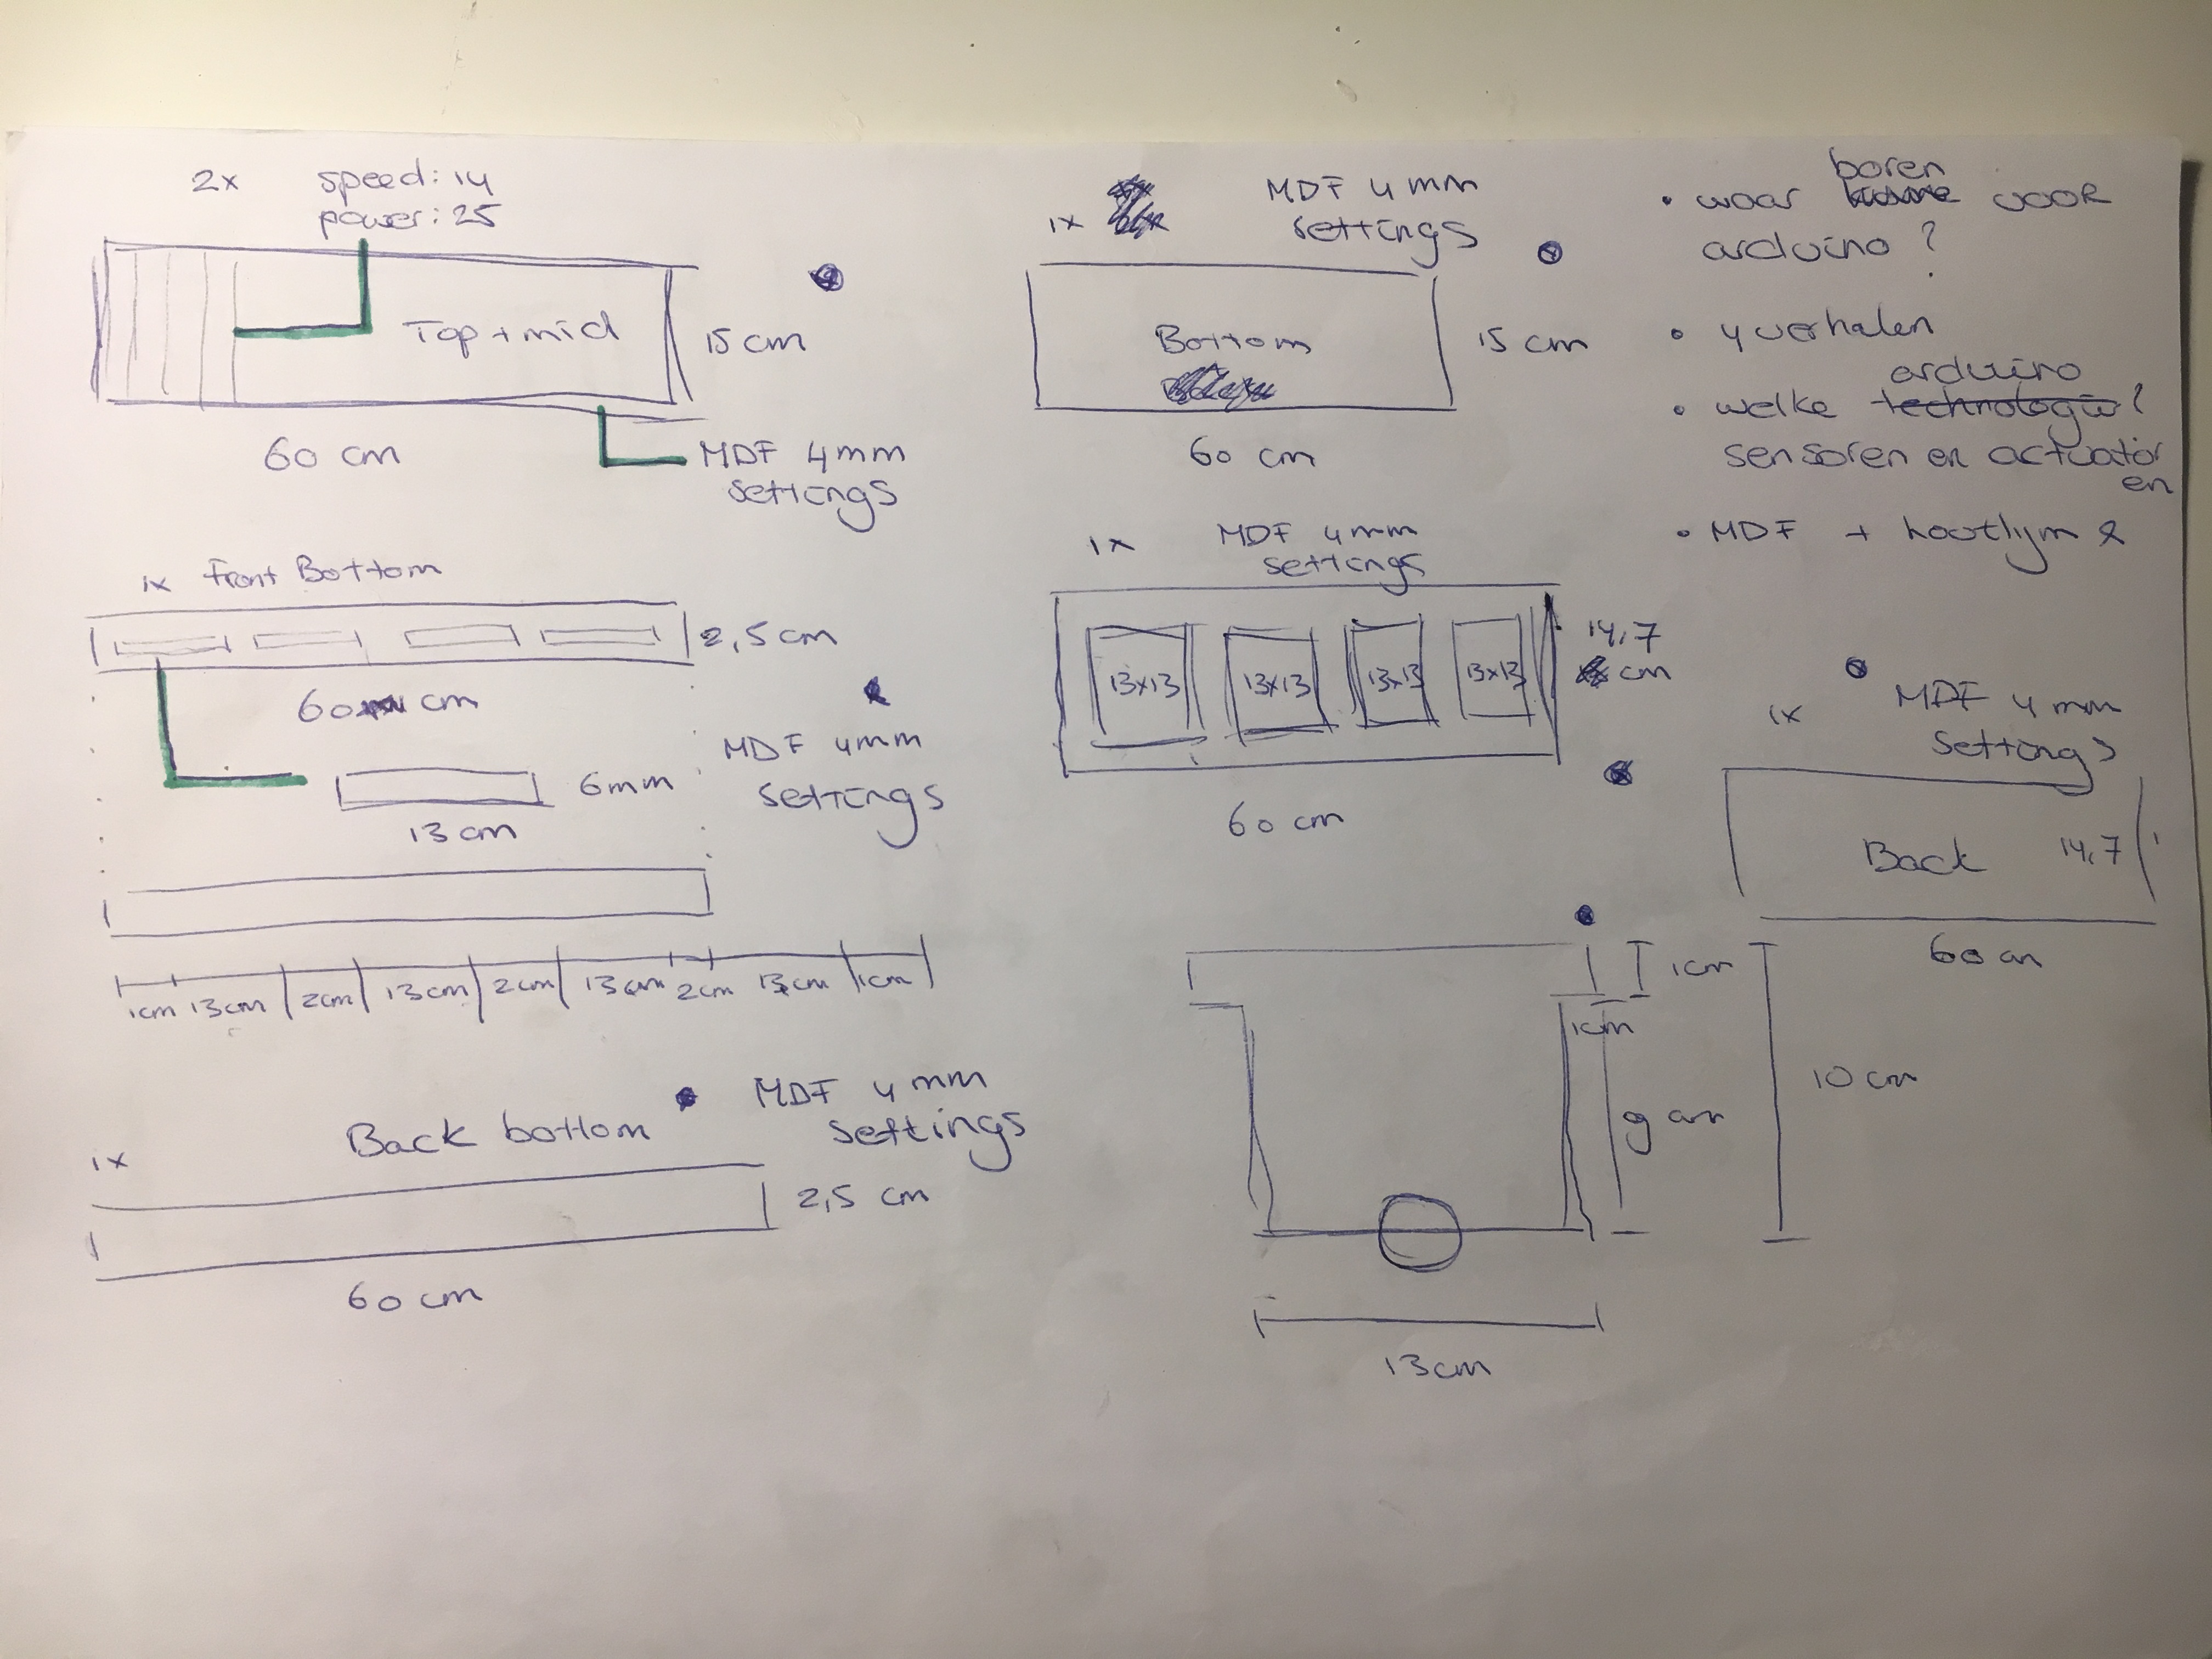 2x
speed: 14
power: 25
Top + mid
15 cm
60 cm
MDF 4mm
settings
1x Front Bottom
2,5 cm
60 cm
MDF 4mm
settings
6mm
13 cm
1cm 13cm 2cm 13cm 2cm 13cm 2cm 13cm 1cm
1x
Back bottom
MDF 4mm
settings
2,5 cm
60 cm
1x
MDF 4mm
settings
Bottom
15 cm
60 cm
1x
MDF 4mm
settings
13x13 13x13 13x13 13x13
14,7
cm
60 cm
1cm
1cm
9 cm
10 cm
13cm
• waar boren voor
arduino?
• 4 verhalen
• welke arduino technologie?
sensoren en actuator
en
• MDF + houtlijm
1x
MDF 4mm
settings
Back
14,7
60 cm